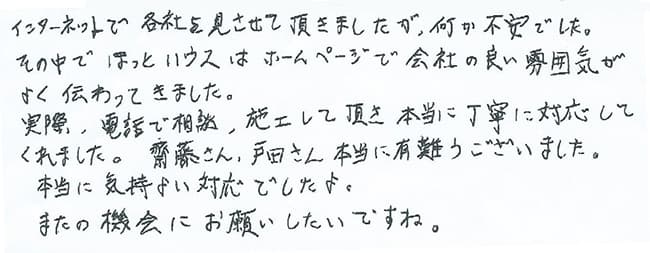 インターネットで各社を見させて頂きましたが、何か不安でした。
その中でほっとハウスはホームページで会社の良い雰囲気が
よく伝わってきました。
実際、電話で相談、施工して頂き本当に丁寧に対応して
くれました。齋藤さん、戸田さん本当に有難うございました。
本当に気持よい対応でしたよ。
またの機会にお願いしたいですね。